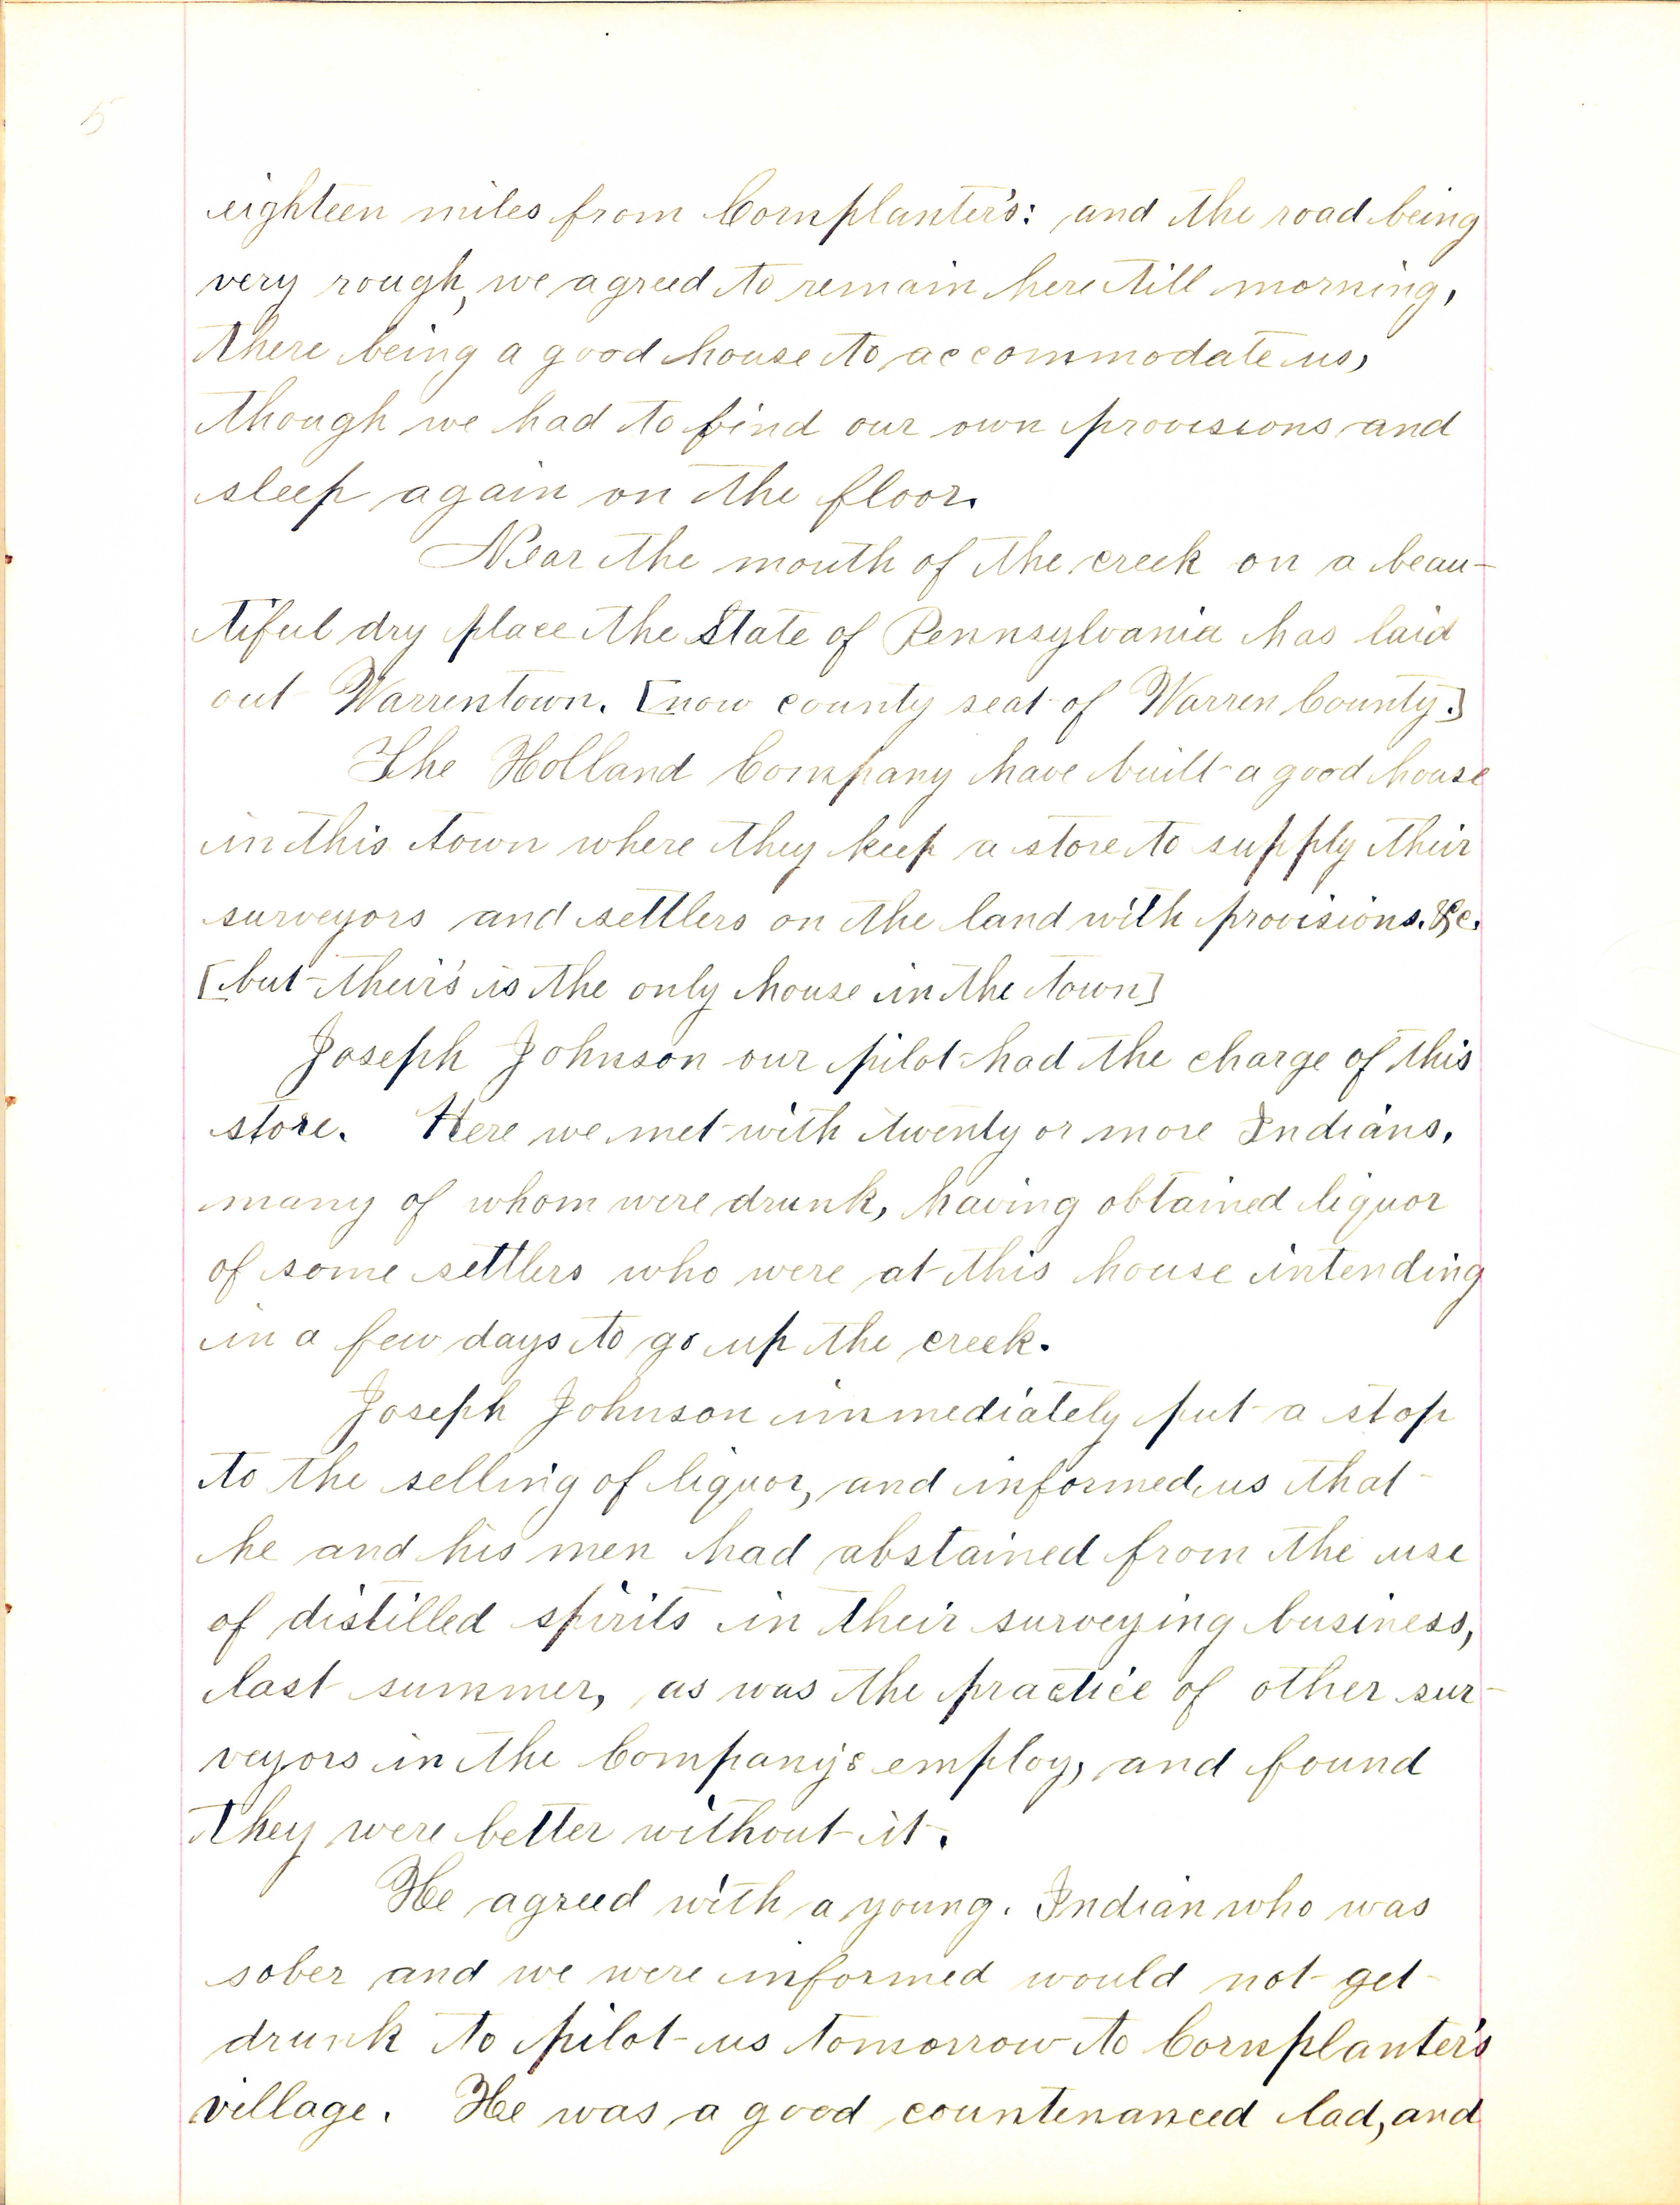 5
eighteen miles from Cornplanter's: and the road being
very rough, we agreed to remain here till morning,
there being a good house to accommodate us,
though we had to find our own provisions and
sleep again on the floor.
Near the mouth of the creek on a beau-
tiful dry place the State of Pennsylvania has laid
out Warrentown. [now county seat of Warren County.]
The Holland Company have built a good house
in this town where they keep a store to supply their
surveyors and settlers on the land with provisions. &c.
[but their's is the only house in the town]
Joseph Johnson our pilot had the charge of this
store. Here we met with twenty or more Indians,
many of whom were drunk, having obtained liquor
of some settlers who were at this house intending
in a few days to go up the creek.
Joseph Johnson immediately put a stop
to the selling of liquor, and informed us that
he and his men had abstained from the use
of distilled spirits in their surveying business,
last summer, as was the practice of other sur-
veyors in the Company's employ, and found
they were better without it.
He agreed with a young. Indian who was
sober and we were informed would not get
drunk to pilot us tomorrow to Cornplanter's
village. He was a good countenanced lad, and